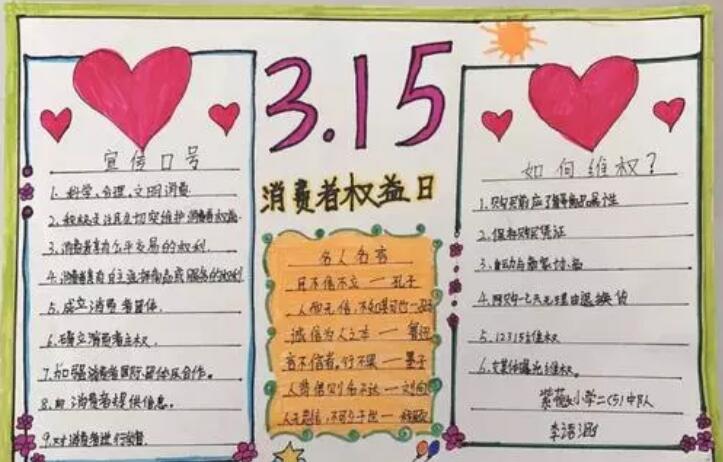 3.15
消费者权益日
宣传口号
1. 科学、合理、文明消费
2. 积极关注且切实维护消费者权益
3. 消费者享有公平交易的权利.
4. 消费者享有自主选择商品或服务的权利
5. 成立消费者团体.
6. 确立消费者主权.
7. 加强消费者国际团体及合作。
8. 向消费者提供信息。
9. 对消费者进行
名人名言
民不信不立 — 孔子
人而无信,不知其可也 —
诚信为人之本 — 鲁迅
言不信者,行不果 — 墨子
人背信则名不达 — 刘向
如何维权?
1. 购买前应了解商品属性
2. 保存购买凭证
3. 主动与商家
4. 网购七天无理由退换货
5. 12315维权
6. 媒体曝光维权.
小学二(5)中队
李语涵